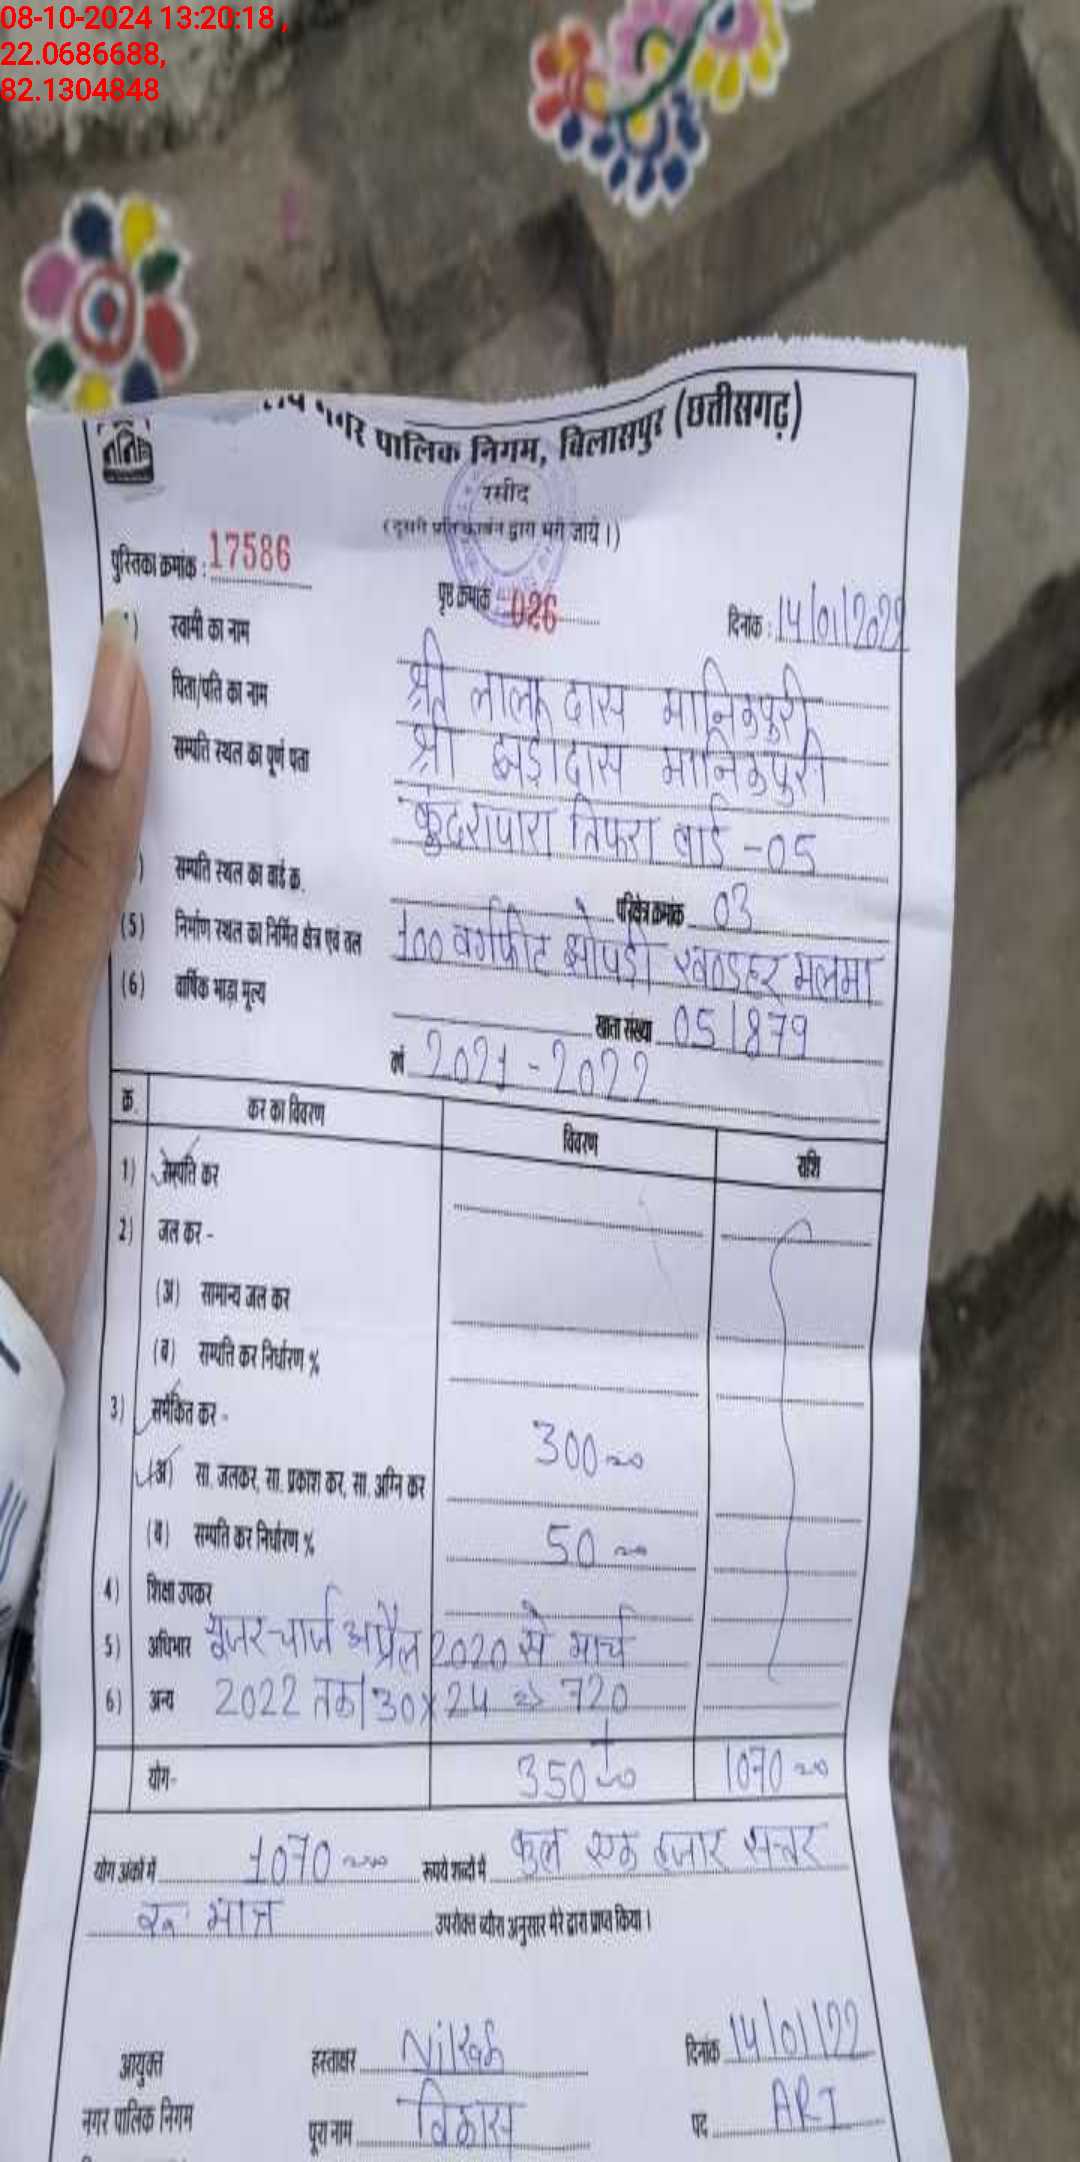 08-10-2024 13:20:18 ,
22.0686688,
82.1304848
नगर पालिक निगम, बिलासपुर (छत्तीसगढ़)
रसीद
(दूसरी प्रति कार्बन द्वारा भरी जाये।)
पुस्तिका क्रमांक : 17586
पृष्ठ क्रमांक 026
दिनांक : 14/01/2022
स्वामी का नाम श्री लाला दास मानिकपुरी
पिता/पति का नाम श्री झाड़ीदास मानिकपुरी
सम्पति स्थल का पूर्ण पता कुंदरापारा तिफरा वार्ड -05
) सम्पति स्थल का वार्ड क्र. परिक्षेत्र क्रमांक 03
(5) निर्माण स्थल का निर्मित क्षेत्र एवं तल 100 वर्गफीट झोपड़ी खण्डहर मलमा
(6) वार्षिक भाड़ा मूल्य खाता संख्या 051879
वर्ष 2021-2022
क्र. कर का विवरण विवरण राशि
1) सम्पति कर
2) जल कर -
(अ) सामान्य जल कर
(ब) सम्पत्ति कर निर्धारण %
3) समेकित कर - 300
(अ) सा. जलकर, सा. प्रकाश कर, सा. अग्नि कर
(ब) सम्पति कर निर्धारण % 50
4) शिक्षा उपकर
5) अधिभार यूजर चार्ज अप्रैल 2020 से मार्च
6) अन्य 2022 तक 30x24 => 720
योग- 350 1070
योग अंकों में 1070 रूपये शब्दों में कुल एक हजार सत्तर
रू मात्र उपरोक्त ब्यौरा अनुसार मेरे द्वारा प्राप्त किया।
आयुक्त हस्ताक्षर दिनांक 14/01/22
नगर पालिक निगम पूरा नाम विकास पद ARI